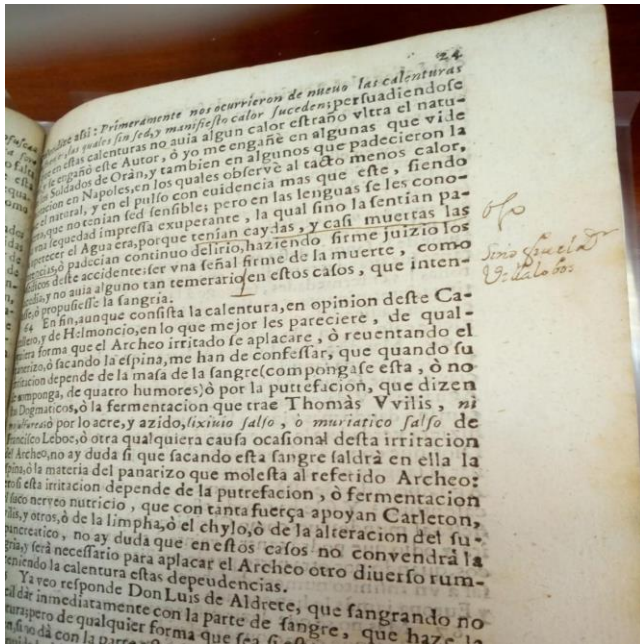 24
assi: Primeramente nos ocurrieron de nueuo las calenturas
las quales sin sed, y manifiesto calor suceden; persuadiendose
estas calenturas no auia algun calor estraño vltra el natu-
se engañó este Autor, ò yo me engañè en algunas que vide
Soldados de Orán, y tambien en algunos que padecieron la
en Napoles, en los quales observè al tacto menos calor,
el natural, y en el pulso con euidencia mas que este, siendo
que no tenian sed sensible; pero en las lenguas se les cono-
vna sequedad impressa exuperante, la qual sino la sentian pa-
apetecer el Agua era, porque tenian caydas, y casi muertas las
ò padecian continuo delirio, haziendo firme juizio los
deste accidente ser vna señal firme de la muerte, como
y no auia alguno tan temerario en estos casos, que inten-
ò propusiesse la sangria.
64 En fin, aunque consista la calentura, en opinion deste Ca-
y de Helmoncio, en lo que mejor les pareciere, de qual-
forma que el Archeo irritado se aplacare, ò reuentando el
panarizo, ò sacando la espina, me han de confessar, que quando su
irritacion depende de la masa de la sangre (compongase esta, ò no
componga, de quatro humores) ò por la puttefacion, que dizen
Dogmaticos, ò la fermentacion que trae Thomàs Vvilis, ni
ò por lo acre, y azido, lixiuio salso, ò muriatico salso de
Francisco Leboe, ò otra qualquiera causa ocasional desta irritacion
del Archeo, no ay duda si que sacando esta sangre saldrà en ella la
espina, ò la materia del panarizo que molesta al referido Archeo:
si esta irritacion depende de la putrefacion, ò fermentacion
suco nerveo nutricio, que con tanta fuerça apoyan Carleton,
y otros, ò de la limpha, ò el chylo, ò de la alteracion del su-
pancreatico, no ay duda que en estos casos no convendrà la
y serà necessario para aplacar el Archeo otro diuerso rum-
teniendo la calentura estas dependencias.
Ya veo responde Don Luis de Aldrete, que sangrando no
dàr inmediatamente con la parte de sangre, que haze la
pero de qualquier forma que sea
dà con la parte
ojo
Villalobos